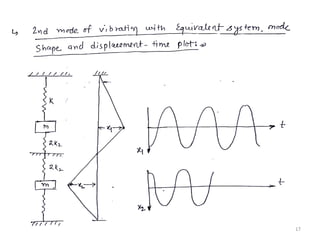 ↳ 2nd mode of vibration with Equivalent system, mode
Shape and displacement - time plot :→
K
m
x1
t
x1
2k2
2k2
m
x2
t
x2
17